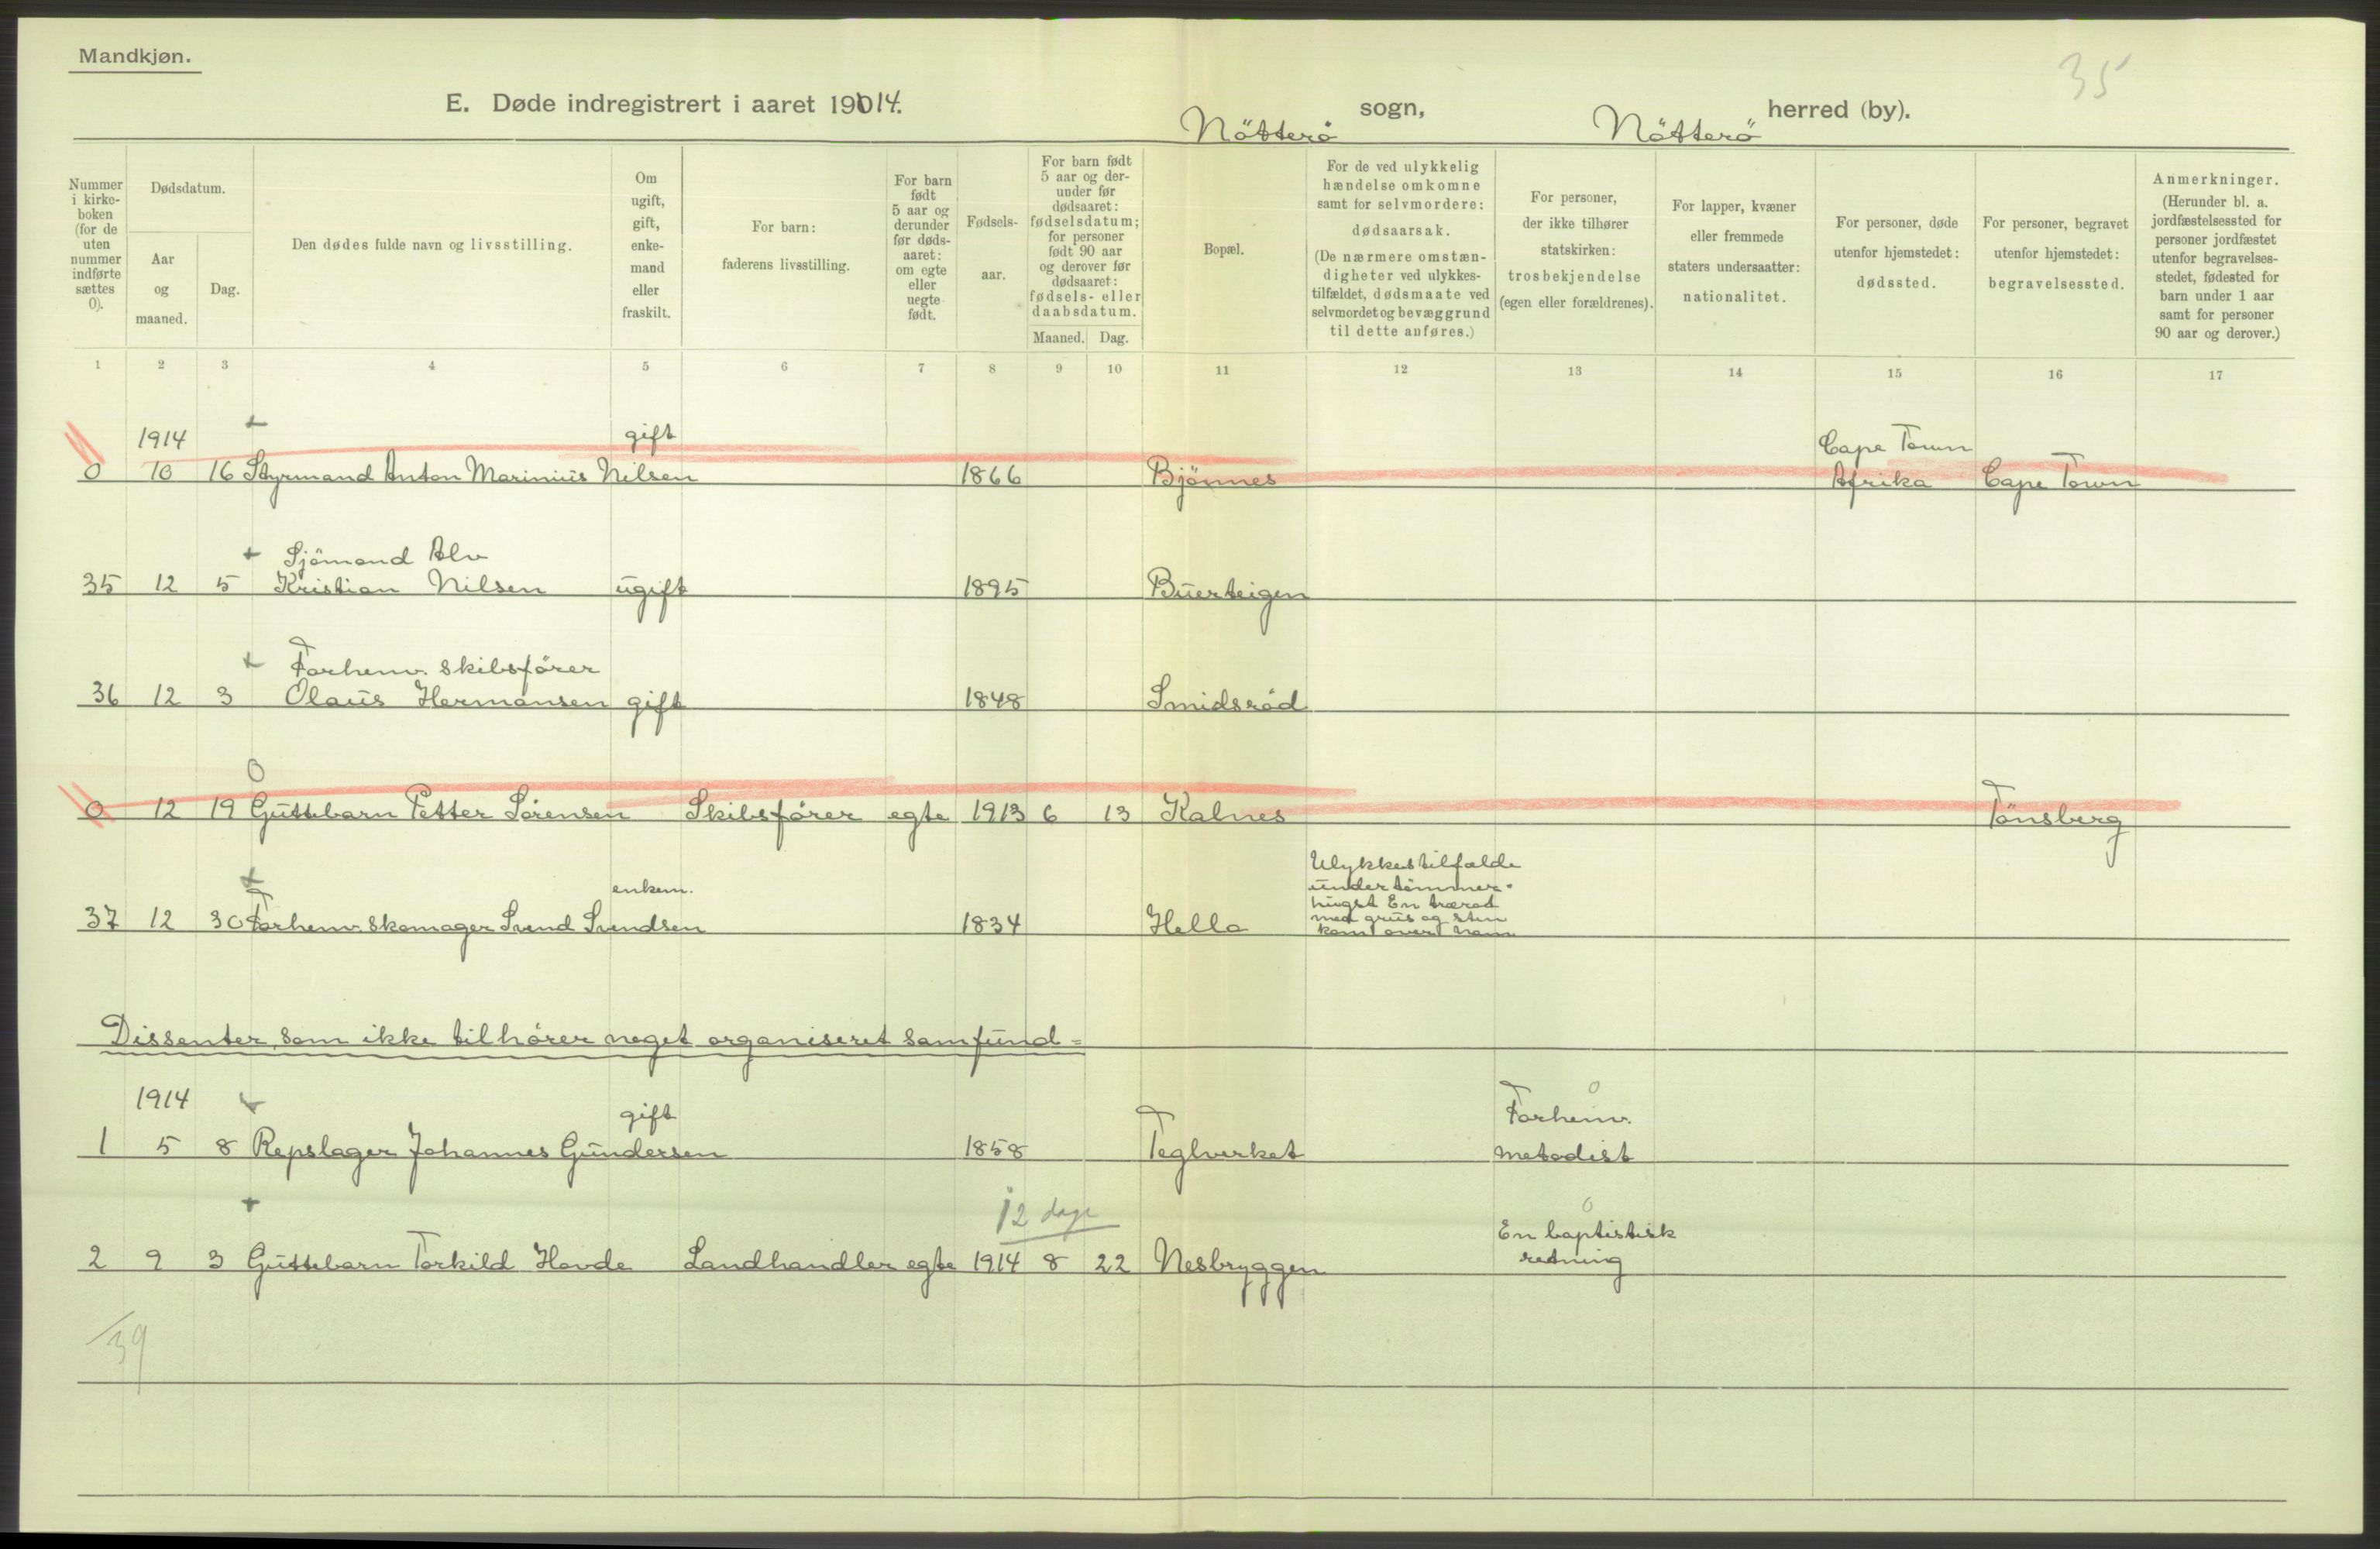 Mandkjøn.
35
E. Døde indregistrert i aaret 1914.
Nötterö sogn, Nötterö herred (by).
Nummer i kirke- boken (for de uten nummer indførte sættes 0).
Dødsdatum.
Aar og maaned.
Dag.
Den dødes fulde navn og livsstilling.
Om ugift, gift, enke- mand eller fraskilt.
For barn: faderens livsstilling.
For barn født 5 aar og derunder før døds- aaret: om egte eller uegte født.
Fødsels- aar.
For barn født 5 aar og der- under før dødsaaret: fødselsdatum; for personer født 90 aar og derover før dødsaaret: fødsels- eller daabsdatum.
Maaned. Dag.
Bopæl.
For de ved ulykkelig hændelse omkomne samt for selvmordere: dødsaarsak. (De nærmere omstæn- digheter ved ulykkes- tilfældet, dødsmaate ved selvmordet og bevæggrund til dette anføres.)
For personer, der ikke tilhører statskirken: trosbekjendelse (egen eller forældrenes).
For lapper, kvæner eller fremmede staters undersaatter: nationalitet.
For personer, døde utenfor hjemstedet: dødssted.
For personer, begravet utenfor hjemstedet: begravelsessted.
Anmerkninger. (Herunder bl. a. jordfæstelsessted for personer jordfæstet utenfor begravelses- stedet, fødested for barn under 1 aar samt for personer 90 aar og derover.)
1 2 3 4 5 6 7 8 9 10 11 12 13 14 15 16 17
1914 + gift Cape Town
0 10 16 Styrmand Anton Marinius Nilsen 1866 Bjönnes Afrika Cape Town
+ Sjömand Alv
35 12 5 Kristian Nilsen ugift 1895 Buerteigen
+ Forhenv. skibsförer
36 12 3 Olaus Hermansen gift 1848 Smidsröd
0
0 12 19 Guttebarn Petter Sörensen Skibsförer egte 1913 6 13 Kalnes Tönsberg
+ enkem. Ulykkestilfælde
under tömmer-
hugst En trærod
med grus og sten
37 12 30 Forhenv. skomager Svend Svendsen 1834 Hella kom over ham
Dissenter som ikke tilhörer noget organiseret samfund =
1914 + gift Forhenv. 0
1 5 8 Repslager Johannes Gundersen 1858 Teglverket metodist
+ 12 dage 0
En baptistisk
2 9 3 Guttebarn Torkild Hovde Landhandler egte 1914 8 22 Nesbryggen retning
39